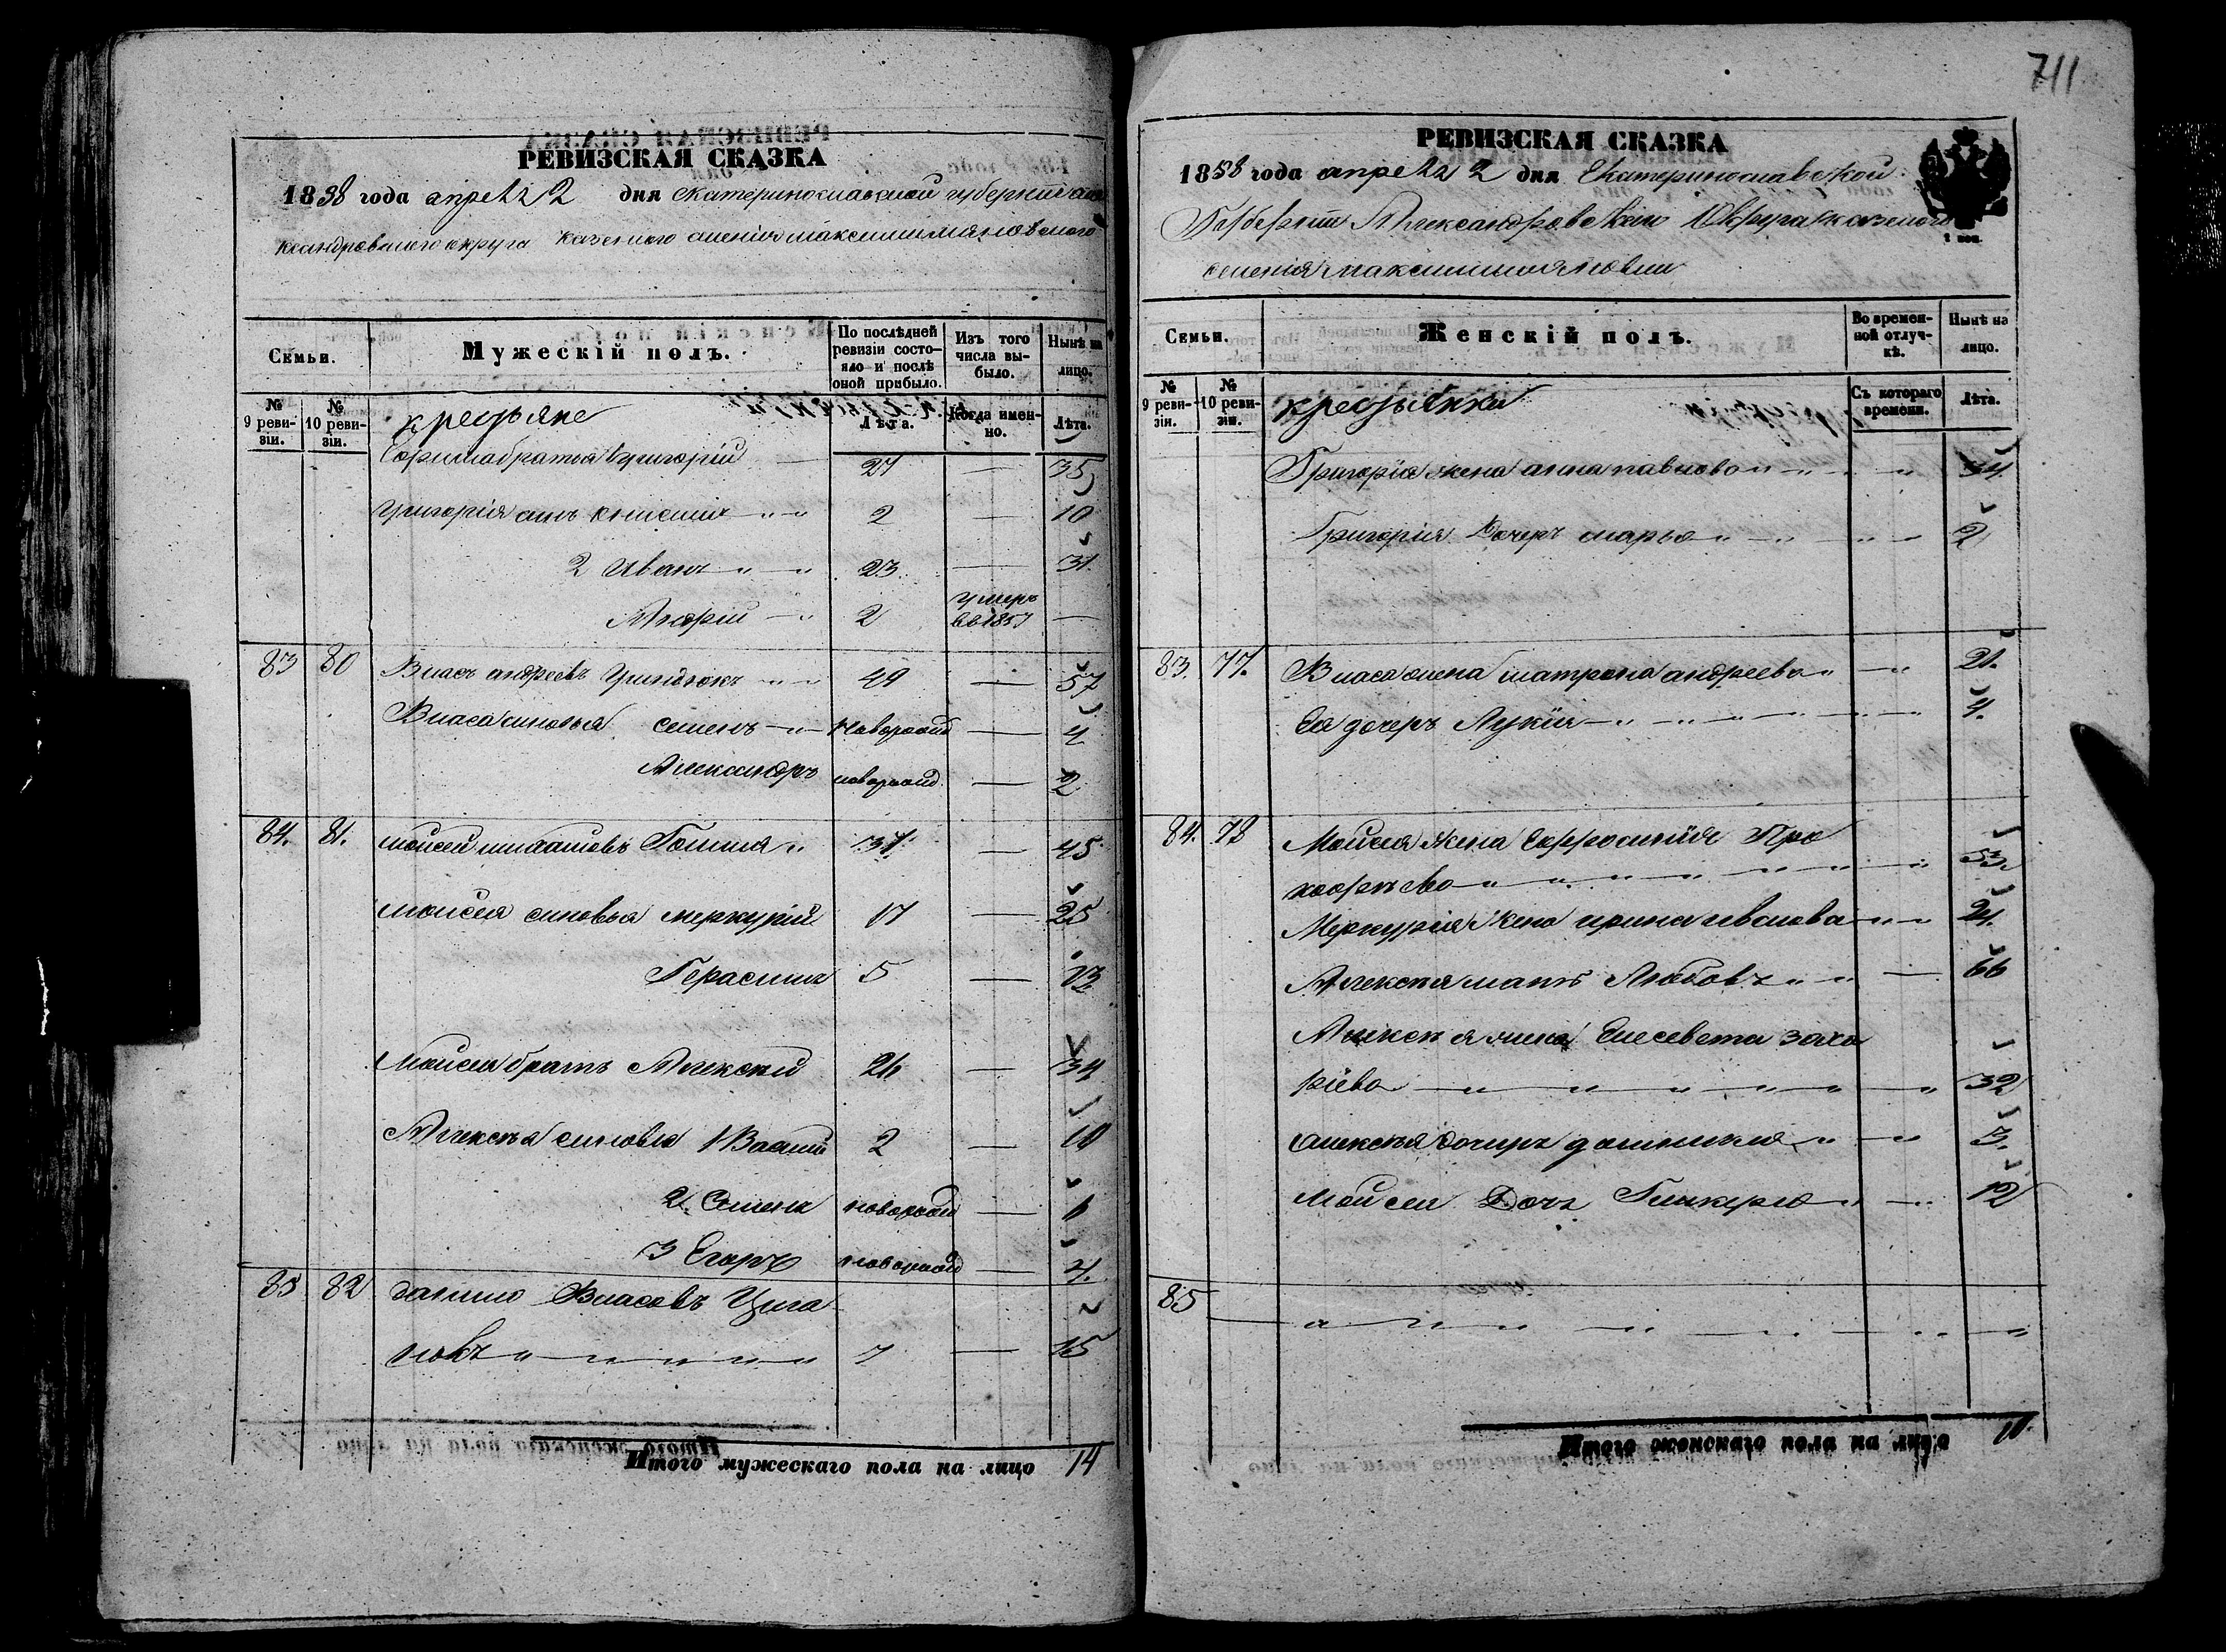 711
РЕВИЗСКАЯ СКАЗКА
1858 года апреля 2 дня Екатеринославской губернии Але
ксандровского округа казенного селения Максимилиановского
Семьи.
Мужескій полъ.
По послѣдней ревизіи состояло и послѣ оной прибыло.
Изъ того числа выбыло.
Нынѣ на лицо.
№ 9 ревизіи.
№ 10 ревизіи.
крестьяне
Лѣта.
Когда именно.
Лѣта.
Ефима братья Григорій 27 — 35
Григорія сынъ 2 — 10
2 Иванъ 23 — 31
Андрій 2 умеръ въ 1857 —
83 80 Власъ Андреевъ 49 — 57
Власа синовья Семенъ новорожд — 4
Александръ новорожд. — 2
84. 81. Моисей Михайловъ 37 — 45
Моисея синовья Меркурій 17 — 25
Герасимъ 5 — 13
Моисея братъ Алексѣй 26 — 34
Алексѣя синовья 1 Василій 2 — 10
2 Семенъ новорожд — 6
3 Егоръ новорожд — 4.
85 82 Данило Власовъ Цига
новъ 7 — 15
Итого мужескаго пола на лицо 14
РЕВИЗСКАЯ СКАЗКА
1858 года апреля 2 дня Екатеринославской
Губерніи Александровскаго Округа казеного
селенія Максимилияновки
Семьи.
Женскій полъ.
Во временной отлучкѣ.
Нынѣ на лицо.
№ 9 ревизіи.
№ 10 ревизіи.
крестьянки
Съ котораго времени.
Лѣта.
Григорія жена анна павлова 34
Григорія Дочеръ марья 2
83. 77. Власа жена матрона андреева 21.
Ея дочеръ Лукія 4.
84. 78 Моисея Жена Ефросинія Про
кофѣева 53.
Меркурія Жена ирина иванова 24.
Алексѣя мать Любовъ 66
Алексѣя жена Елесевета заха
ріева 32
алексѣя дочиръ домникия 3.
Мойсея Дочъ Гликерия 12
85
Итого женскаго пола на лицо 10.